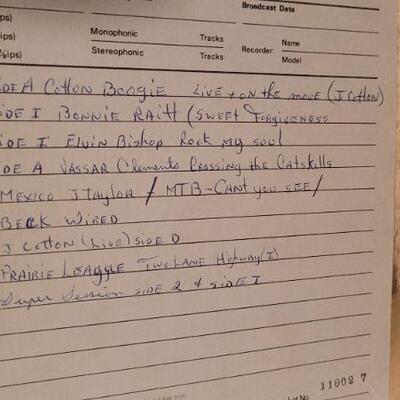 Broadcast Date
ips)
ips)
⅞ips)
Monophonic Tracks
Stereophonic Tracks
Recorder: Name
Model
IDE A Cotton Boogie Live + on the move (J Cotton)
IDE I Bonnie Raitt (Sweet Forgiveness
IDE I Elvin Bishop Rock my soul
IDE A Vassar Clements Crossing the Catskills
Mexico J Taylor / MTB - Cant you see /
Beck Wired
J Cotton (Live) side D
Prairie League Two Lane Highway (I)
Super Session side 2 + side I
No. 11002 7